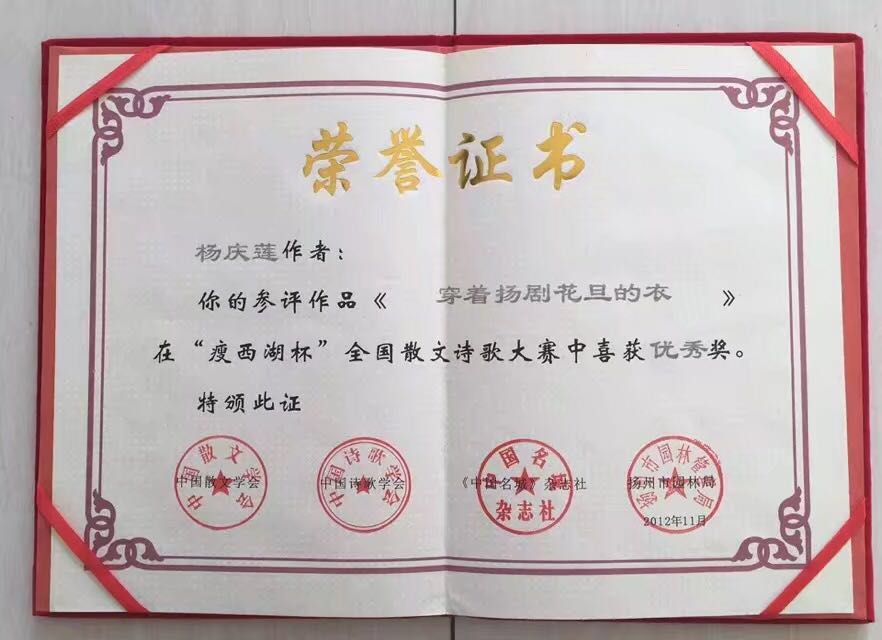 荣誉证书
杨庆莲作者：
你的参评作品《 穿着扬剧花旦的衣 》
在“瘦西湖杯”全国散文诗歌大赛中喜获优秀奖。
特颁此证
中国散文学会
中国散文学会
中国诗歌学会
中国诗歌学会
《中国名城》杂志社
中国名城
杂志社
扬州市园林局
扬州市园林管理局
2012年11月